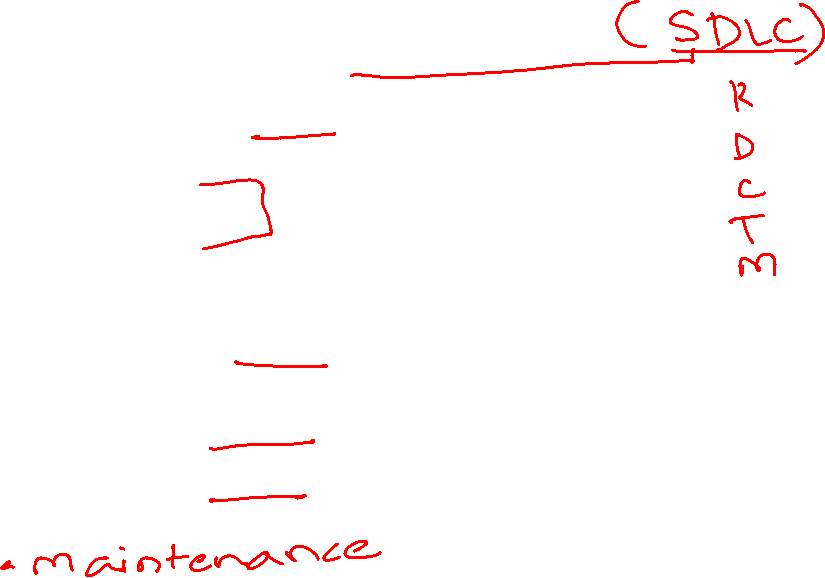 (SDLC)
R
D
C
T
M
• maintenance